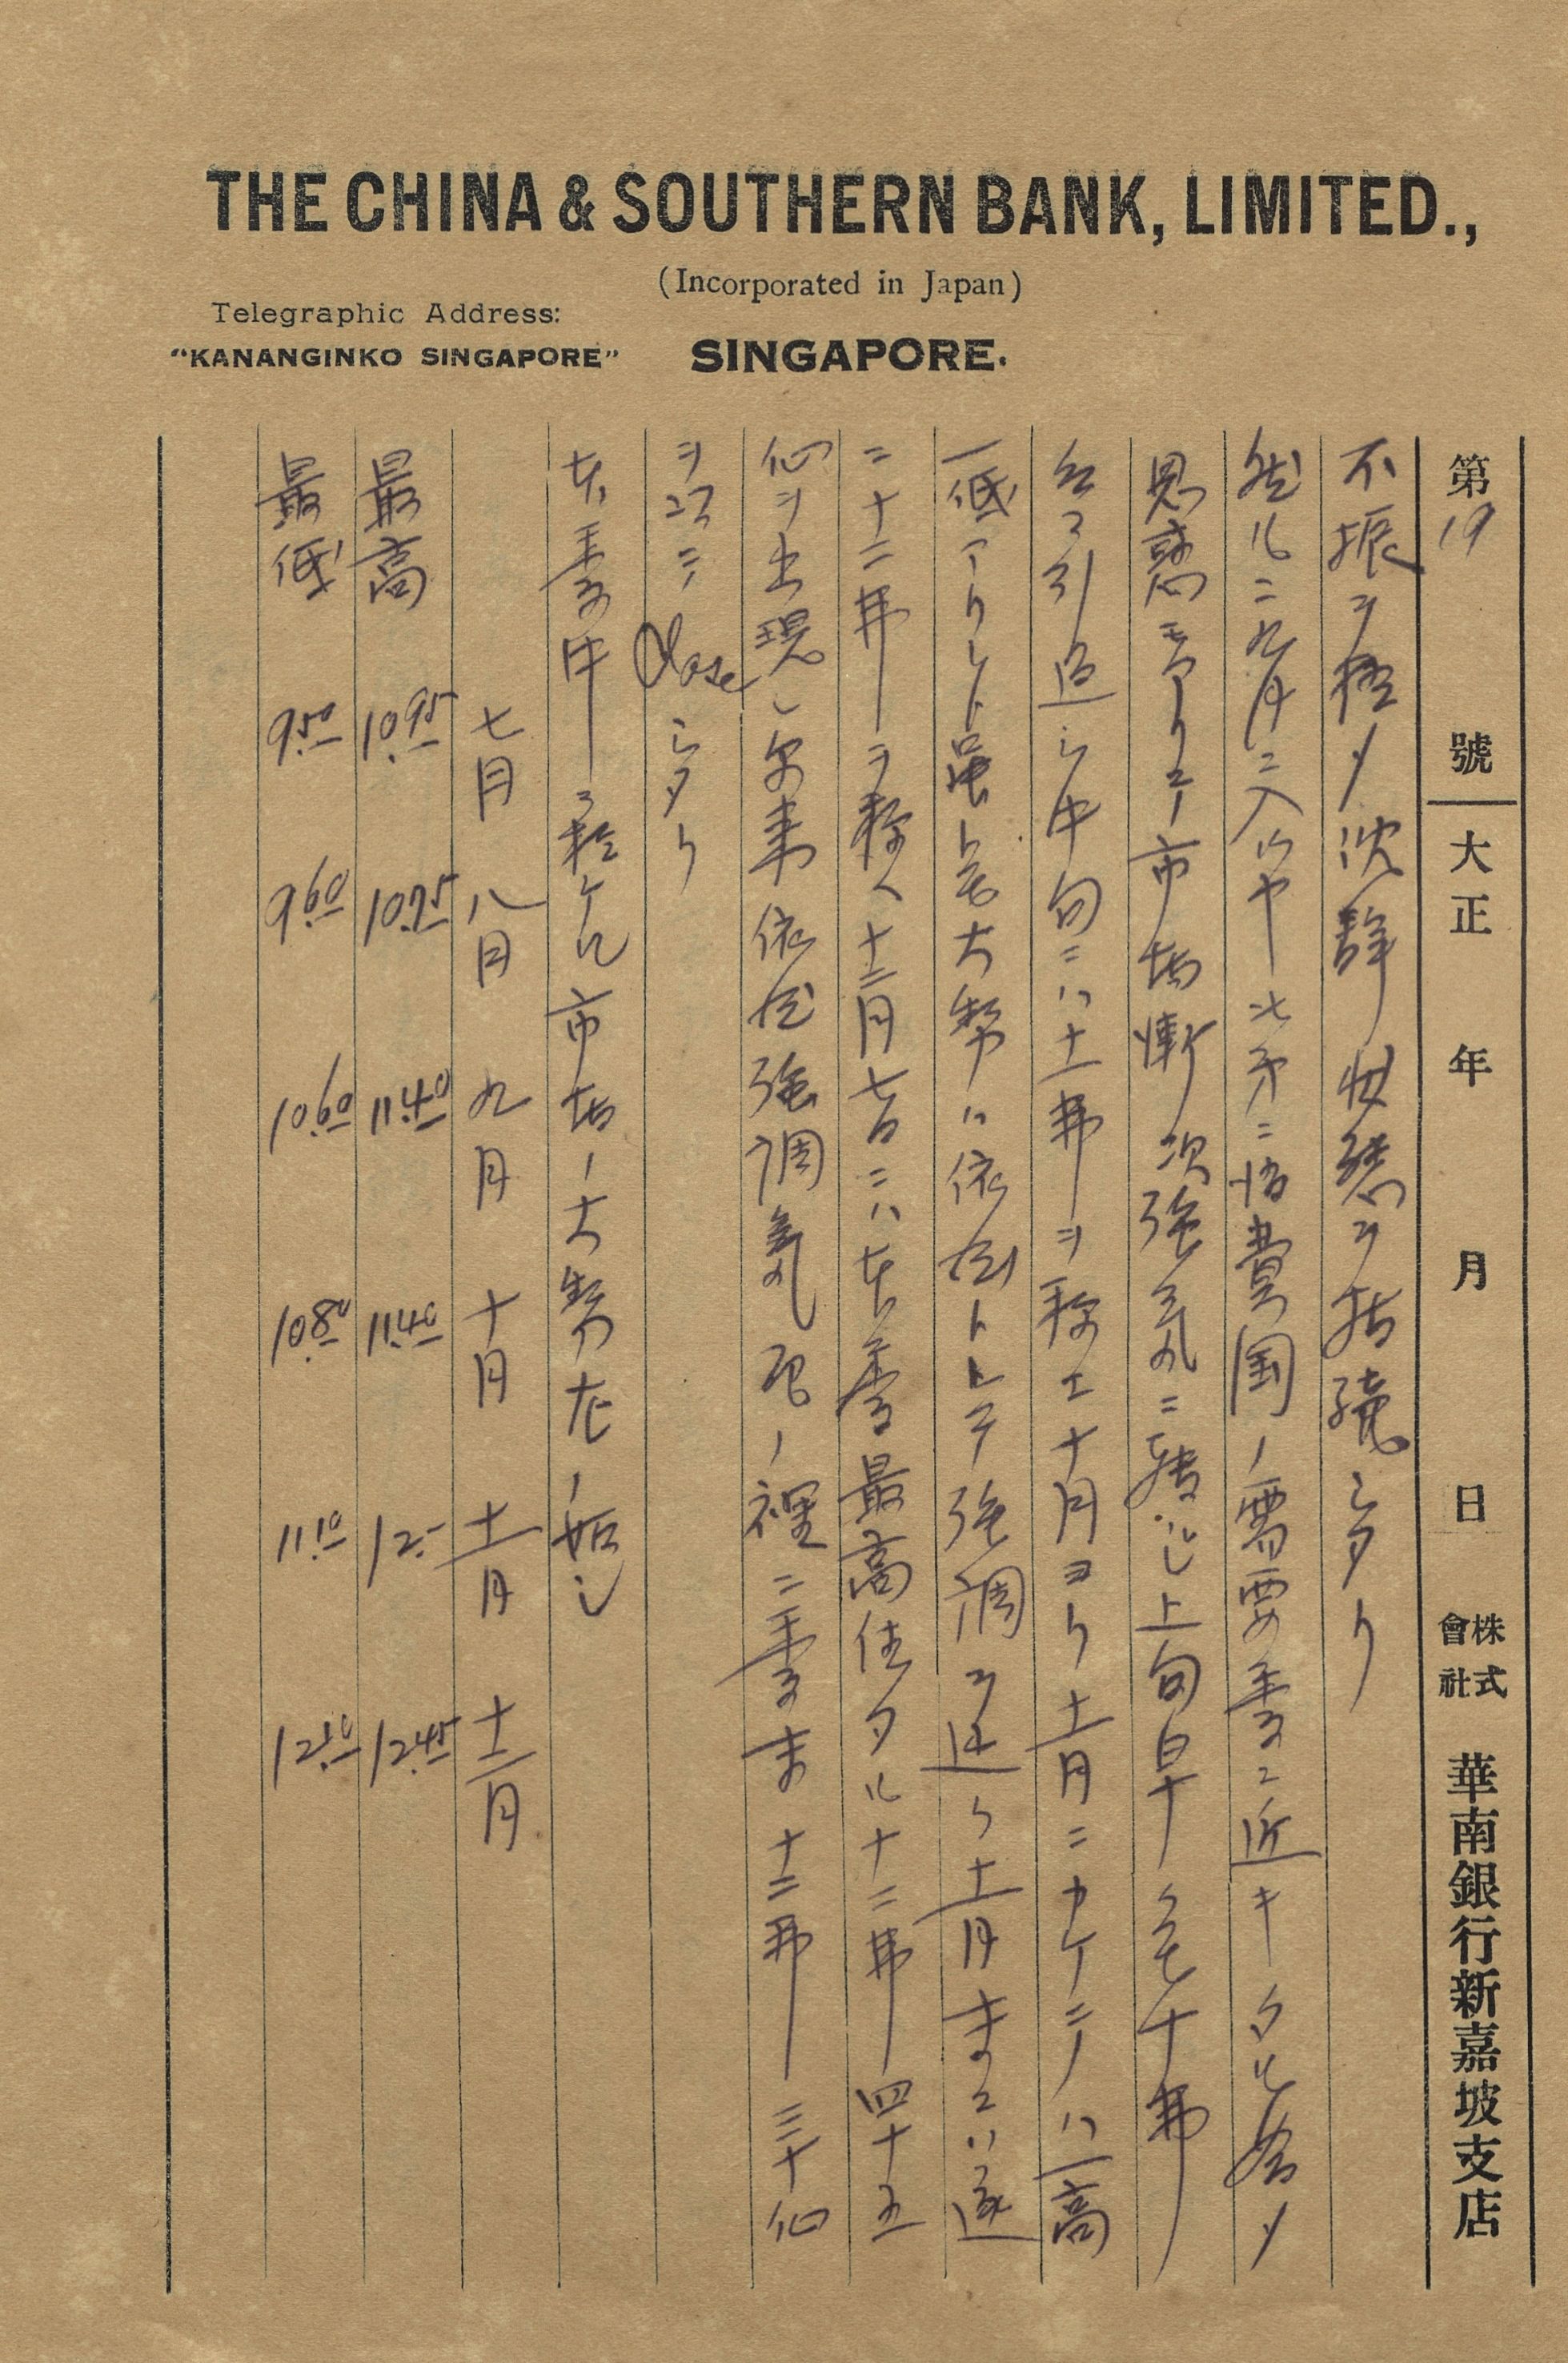 THE CHINA & SOUTHERN BANK, LIMITED.,
(Incorporated in Japan)
Telegraphic Address:
"KANANGINKO SINGAPORE"
SINGAPORE.
第19號 大正 年 月 日 株式會社 華南銀行新嘉坡支店
不振ヲ極メ沈静状態ヲ持続シタリ
然ルニ九月ニ入ルヤ 次第ニ消費国ノ需要季ニ近キタル為メ
思惑モアリテ市場漸次強気ニ転ジ上旬早クモ十弗
台ヲ引返シ中旬ニハ十一弗ヲ称エ十月ヨリ十一月ニカケテハ一高
一低アリシト雖トモ大勢ハ依然トシテ強調ヲ辿リ十一月末ニハ遂
ニ十二弗ヲ称ヘ十二月七日ニハ本季最高値タル十二弗四十五
仙ヲ出現シ爾来依然強調気配ノ裡ニ季末十二弗三十仙
ヲ以テ Close シタリ
本季中ニ於ケル市場ノ大勢左ノ如シ
七月 八月 九月 十月 十一月 十二月
最高 10.95 10.75 11.40 11.40 12.- 12.45
最低 9.50 9.60 10.60 10.80 11.10